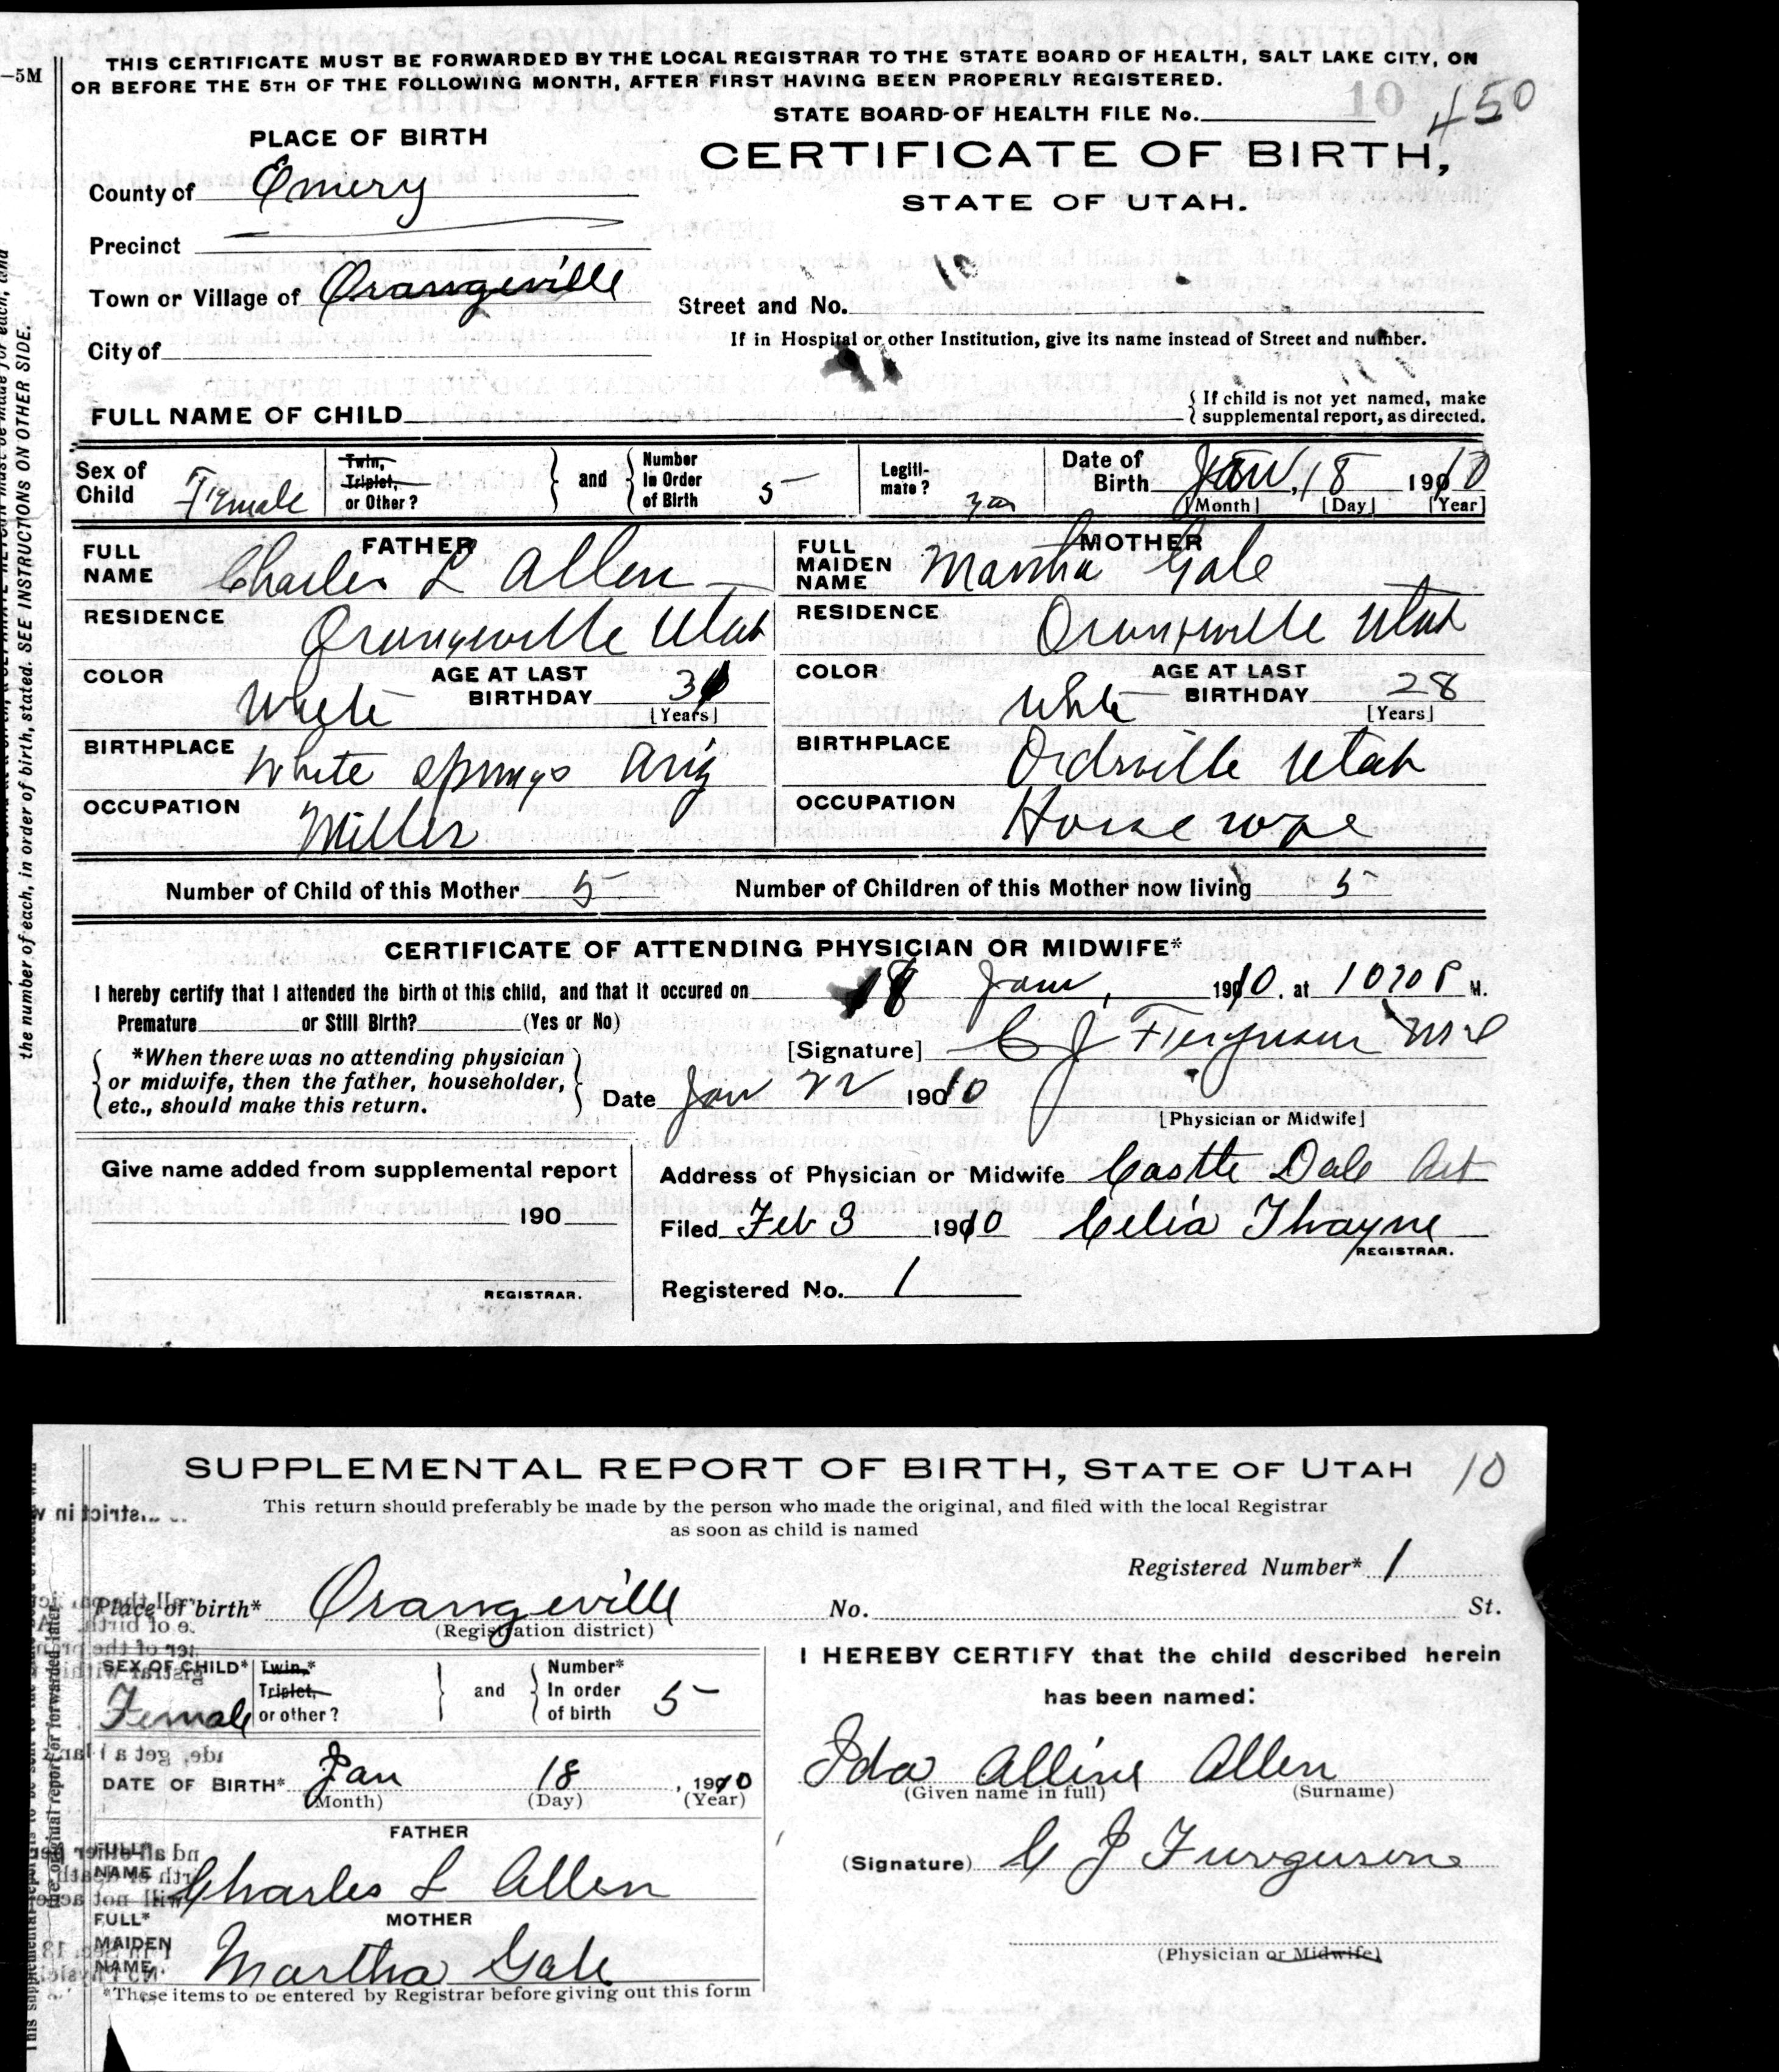 THIS CERTIFICATE MUST BE FORWARDED BY THE LOCAL REGISTRAR TO THE STATE BOARD OF HEALTH, SALT LAKE CITY, ON
—5M
OR BEFORE THE 5TH OF THE FOLLOWING MONTH, AFTER FIRST HAVING BEEN PROPERLY REGISTERED.
10 450
STATE BOARD OF HEALTH FILE No.
PLACE OF BIRTH
CERTIFICATE OF BIRTH,
County of Emery
STATE OF UTAH.
Precinct
Town or Village of Orangeville
Street and No.
If in Hospital or other Institution, give its name instead of Street and number.
City of
FULL NAME OF CHILD
{ If child is not yet named, make
{ supplemental report, as directed.
Sex of Child Female
Twin, Triplet, or Other?
} and {
Number in Order of Birth 5
Legiti-mate?
Date of Birth Jan, 18 1910
[Month] [Day] [Year]
FATHER
FULL NAME Charles L Allen
MOTHER
FULL MAIDEN NAME Martha Gale
RESIDENCE Orangeville Utah
RESIDENCE Orangeville Utah
COLOR White AGE AT LAST BIRTHDAY
[Years]
COLOR White AGE AT LAST BIRTHDAY 28
[Years]
BIRTHPLACE White Springs Ariz
BIRTHPLACE Ordville Utah
OCCUPATION Miller
OCCUPATION House wife
Number of Child of this Mother 5 Number of Children of this Mother now living 5
CERTIFICATE OF ATTENDING PHYSICIAN OR MIDWIFE*
I hereby certify that I attended the birth of this child, and that it occured on 18 Jan, 1910, at P M.
Premature or Still Birth? (Yes or No)
{ *When there was no attending physician
or midwife, then the father, householder,
etc., should make this return. }
[Signature] C J Ferguson
Date Jan 22 1910
[Physician or Midwife]
Give name added from supplemental report
190
REGISTRAR.
Address of Physician or Midwife Castle Dale
Filed Feb 3 1910 Celia Thayne
REGISTRAR.
Registered No. 1
the number of each, in order of birth, stated. SEE INSTRUCTIONS ON OTHER SIDE.
SUPPLEMENTAL REPORT OF BIRTH, STATE OF UTAH 10
This return should preferably be made by the person who made the original, and filed with the local Registrar
as soon as child is named
Registered Number* 1
Place of birth* Orangeville No. St.
(Registration district)
SEX OF CHILD* Female
Twin,* Triplet, or other?
} and {
Number* In order of birth 5
DATE OF BIRTH* Jan 18, 1910
(Month) (Day) (Year)
FATHER
FULL* NAME Charles L Allen
MOTHER
FULL* MAIDEN NAME. Martha Gale
*These items to be entered by Registrar before giving out this form
I HEREBY CERTIFY that the child described herein
has been named:
Ida Alline Allen
(Given name in full) (Surname)
(Signature) C J Furguson
(Physician or Midwife)